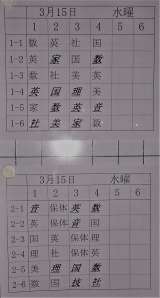 3月15日 水曜
1 2 3 4 5 6
1-1 数 英 社 国
1-2 英 家 国 数
1-3 数 社 美 英
1-4 英 国 理 美
1-5 家 数 英 音
1-6 社 美 家 数
3月15日 水曜
1 2 3 4 5 6
2-1 音 保体 英 数
2-2 英 保体 音 国
2-3 国 英 保体 理
2-4 理 社 保体 英
2-5 美 理 国 数
2-6 数 国 技 社